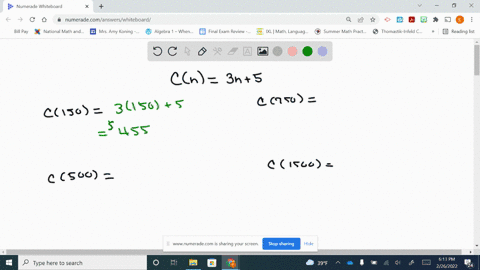 Numerade Whiteboard
numerade.com/answers/whiteboard/
Bill Pay
National Math and...
Mrs. Amy Koning -...
Algebra 1 – When...
Final Exam Review -...
IXL | Math, Languag...
Summer Math Practi...
Thomastik-Infeld C...
Reading list
C(n) = 3n+5
C(150) = 3(150) + 5
= $455
C(750) =
C(500) =
C(1500) =
www.numerade.com is sharing your screen.
Stop sharing
Hide
Type here to search
39°F
6:13 PM
2/26/2022